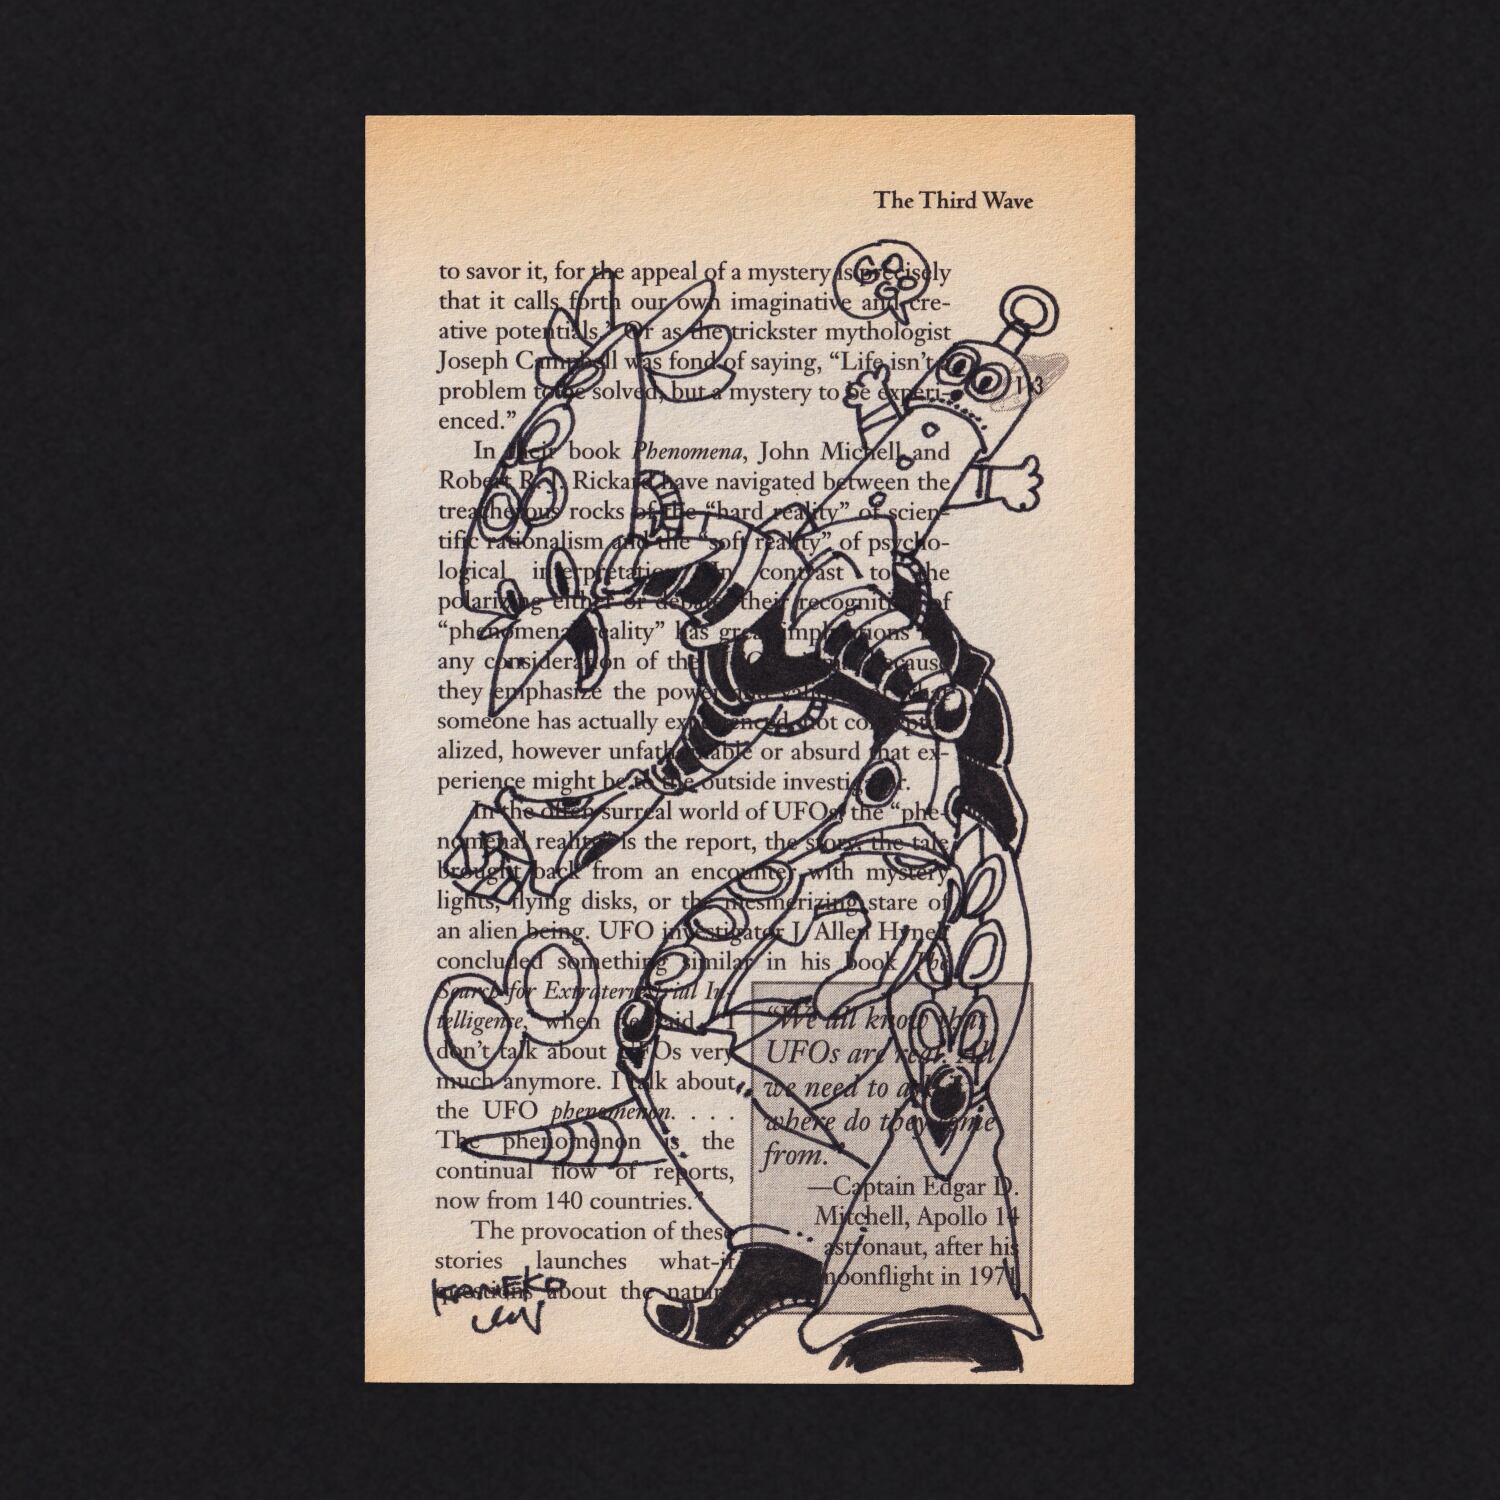 The Third Wave
GO
GO
to savor it, for the appeal of a mystery is precisely
that it calls forth our own imaginative and cre-
ative potentials.” Or as the trickster mythologist
Joseph Campbell was fond of saying, “Life isn’t a
problem to be solved, but a mystery to be experi-
enced.”
113
In their book Phenomena, John Michell and
Robert R. J. Rickard have navigated between the
treacherous rocks of the “hard reality” of scien-
tific rationalism and the “soft reality” of psycho-
logical interpretation. In contrast to the
polarizing either/or debate, their recognition of
“phenomenal reality” has great implications
any consideration of the because
they emphasize the power and what
someone has actually experienced, not conceptu-
alized, however unfathomable or absurd that ex-
perience might be to the outside investigator.
In the often surreal world of UFOs, the “phe-
nomenal reality” is the report, the story, the tale
brought back from an encounter with mystery
lights, flying disks, or the mesmerizing stare of
an alien being. UFO investigator J. Allen Hynek
concluded something similar in his book The
Search for Extraterrestrial In-
telligence, when he said, “I
don’t talk about UFOs very
much anymore. I talk about
the UFO phenomenon. . . .
The phenomenon is the
continual flow of reports,
now from 140 countries.”
The provocation of these
stories launches what-if
questions about the nature
“We all know that
UFOs are real. All
we need to ask is
where do they come
from.”
—Captain Edgar D.
Mitchell, Apollo 14
astronaut, after his
moonflight in 1971
KANEKO